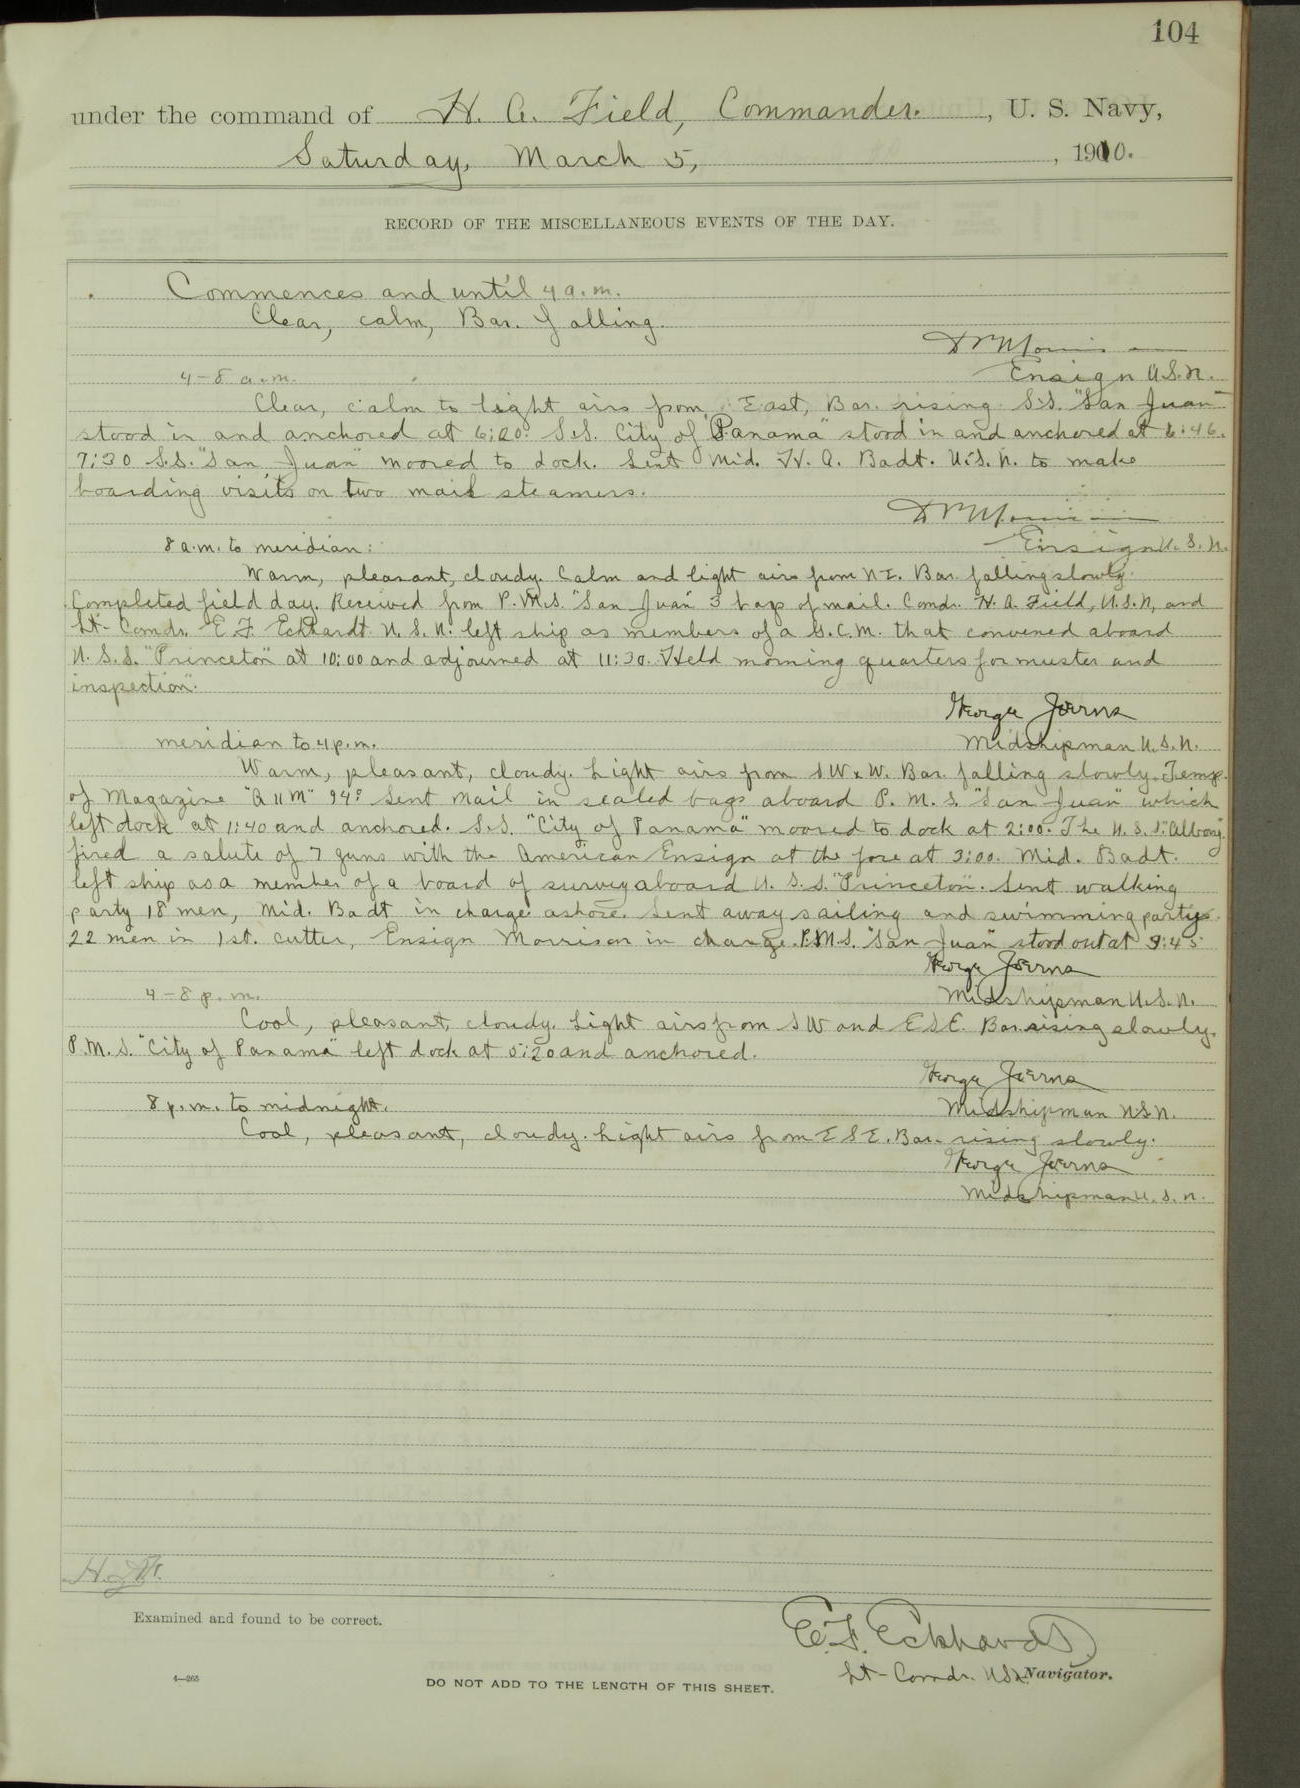 104
under the command of H. A. Field, Commander. , U. S. Navy,
Saturday, March 5, , 1910.
RECORD OF THE MISCELLANEOUS EVENTS OF THE DAY.
Commences and until 4 a.m.
Clear, calm, Bar. falling.
Ensign U.S.N.
4-8 a.m.
Clear, calm to light airs from East, Bar. rising. S.S. "San Juan"
stood in and anchored at 6:20. S.S. City of Panama" stood in and anchored at 6:46.
7:30 S.S. "San Juan" moored to dock. Sent Mid. H. A. Badt. U.S.N. to make
boarding visits on two mail steamers.
Ensign U.S.N.
8 a.m. to meridian:
Warm, pleasant, cloudy. Calm and light airs from NE. Bar. falling slowly.
Completed field day. Received from P.M.S. "San Juan" 3 bags of mail. Comdr. H. A. Field, U.S.N, and
Lt- Comdr. E. F. Eckhardt U. S. N. left ship as members of a G.C.M. that convened aboard
U.S.S. "Princeton" at 10:00 and adjourned at 11:30. Held morning quarters for muster and
inspection.
George Joerns
Midshipman U.S.N.
meridian to 4 p.m.
Warm, pleasant, cloudy. Light airs from SW x W. Bar. falling slowly. Temp.
of Magazine "A11M" 94° Sent mail in sealed bags aboard P. M. S. "San Juan" which
left dock at 1:40 and anchored. S.S. "City of Panama" moored to dock at 2:00. The U.S.S. "Albany"
fired a salute of 7 guns with the American Ensign at the fore at 3:00. Mid. Badt.
left ship as a member of a board of survey aboard U. S. S. "Princeton". Sent walking
party 18 men, Mid. Badt in charge ashore. Sent away sailing and swimming party
22 men in 1st. cutter, Ensign Morrison in charge. P.M.S. "San Juan" stood out at 3:45
George Joerns
Midshipman U.S.N.
4-8 p.m.
Cool, pleasant, cloudy. Light airs from SW and ESE. Bar. rising slowly.
P.M.S. "City of Panama" left dock at 5:20 and anchored.
George Joerns
Midshipman USN.
8 p.m. to midnight.
Cool, pleasant, cloudy. Light airs from ESE. Bar. rising slowly.
George Joerns
Midshipman U.S.N.
Examined and found to be correct.
E. F. Eckhardt
Lt- Comdr. USN. Navigator.
4—265
DO NOT ADD TO THE LENGTH OF THIS SHEET.